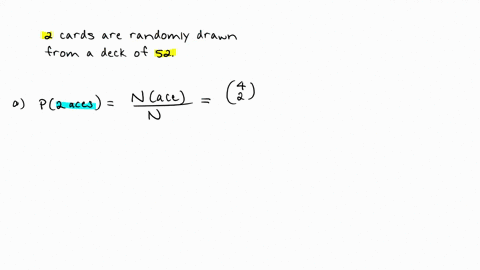 2 cards are randomly drawn
from a deck of 52.
a) P(2 aces) = N(ace) / N = (4 2)